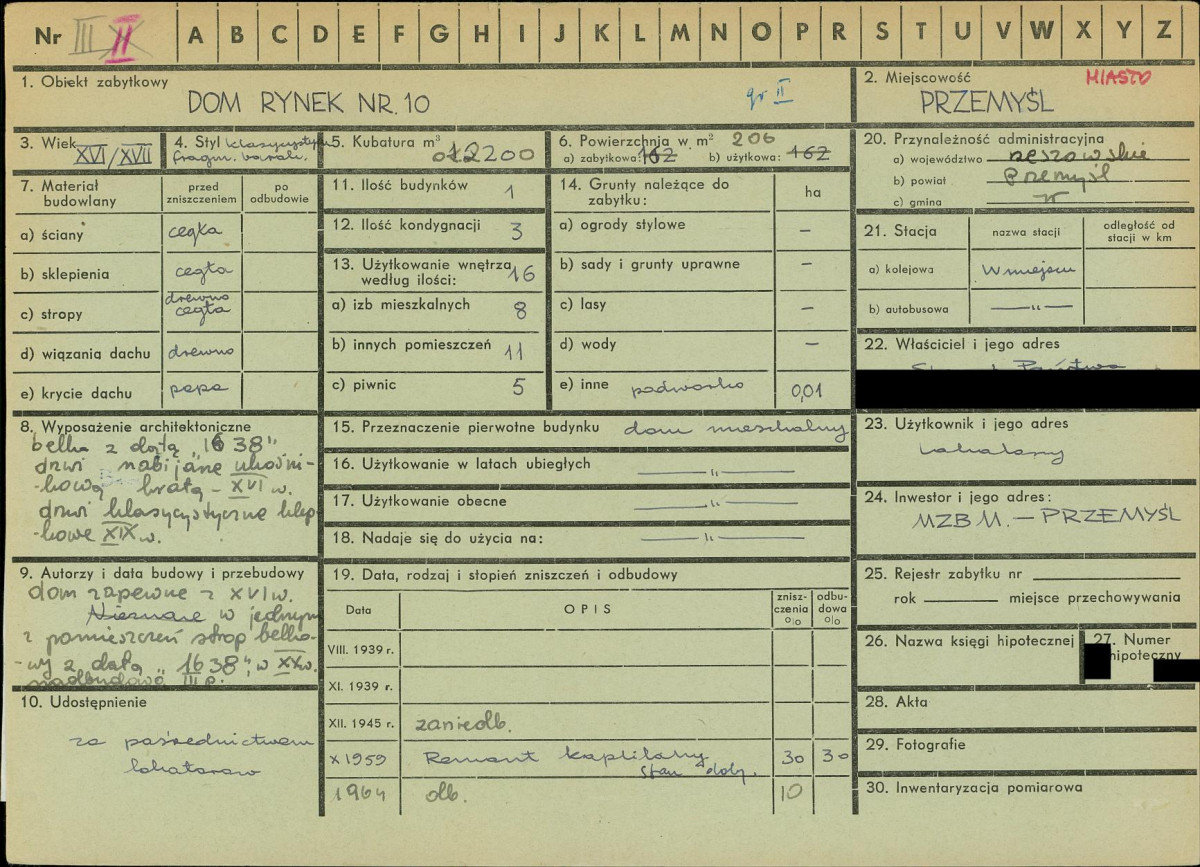 Nr III II A B C D E F G H I J K L M N O P R S T U V W X Y Z
1. Obiekt zabytkowy
DOM RYNEK NR. 10
gr II
2. Miejscowość MIASTO
PRZEMYŚL
3. Wiek
XVI/XVII
4. Styl klasycystyczn
fragm. barok.
5. Kubatura m³
2200
6. Powierzchnia w m² 206
a) zabytkowa: 162 b) użytkowa: 162
20. Przynależność administracyjna
a) województwo rzeszowskie
b) powiat Przemyśl
c) gmina
7. Materiał budowlany
przed zniszczeniem
po odbudowie
a) ściany cegła
b) sklepienia cegła
c) stropy drewno
cegła
d) wiązania dachu drewno
e) krycie dachu papa
11. Ilość budynków 1
12. Ilość kondygnacji 3
13. Użytkowanie wnętrza
według ilości: 16
a) izb mieszkalnych 8
b) innych pomieszczeń 11
c) piwnic 5
14. Grunty należące do
zabytku:
ha
a) ogrody stylowe –
b) sady i grunty uprawne –
c) lasy –
d) wody –
e) inne podwórko 0,01
21. Stacja
nazwa stacji
odległość od
stacji w km
a) kolejowa W miejscu
b) autobusowa —„—
22. Właściciel i jego adres
8. Wyposażenie architektoniczne
belka z datą „1638"
drzwi nabijane ukośni-
-kową kratą – XVI w.
drzwi klasycystyczne klep
-kowe XIX w.
15. Przeznaczenie pierwotne budynku dom mieszkalny
16. Użytkowanie w latach ubiegłych —„—
17. Użytkowanie obecne —„—
18. Nadaje się do użycia na: —„—
23. Użytkownik i jego adres
Lokatorzy
24. Inwestor i jego adres:
MZBM. – PRZEMYŚL
9. Autorzy i data budowy i przebudowy
dom zapewne z XVI w.
Nieznane w jednym
z pomieszczeń strop belko-
-wy z datą „1638", w XX w.
nadbudowa III p.
19. Data, rodzaj i stopień zniszczeń i odbudowy
Data
OPIS
znisz-
czenia
o/o
odbu-
dowa
o/o
VIII. 1939 r.
XI. 1939 r.
XII. 1945 r. zaniedb.
X 1959 Remont kapitalny 30 30
stan dob.
1964 db. 10
25. Rejestr zabytku nr
rok miejsce przechowywania
26. Nazwa księgi hipotecznej
27. Numer
hipoteczny
10. Udostępnienie
za pośrednictwem
lokatorów
28. Akta
29. Fotografie
30. Inwentaryzacja pomiarowa